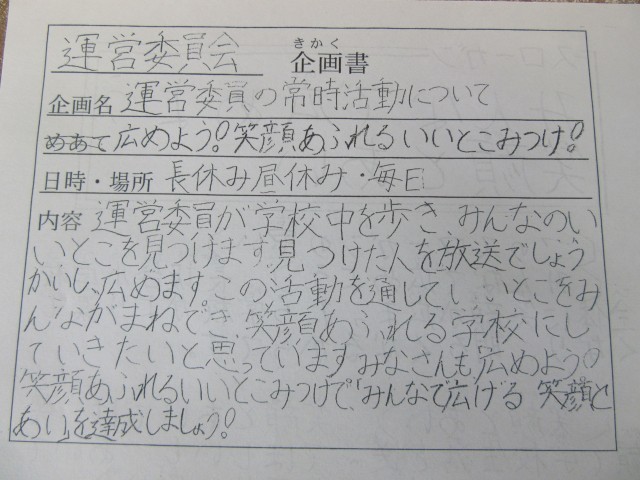 運営委員会
きかく
企画書
企画名 運営委員の常時活動について
めあて 広めよう!笑顔あふれるいいとこみつけ!
日時・場所 長休み昼休み・毎日
内容 運営委員が学校中を歩き、みんなのい
いとこを見つけます。見つけた人を放送でしょう
かいし、広めます。この活動を通していいとこをみ
んながまねでき、笑顔あふれる学校にし
ていきたいと思っています。みなさんも「広めよう!
笑顔あふれるいいとこみつけ」で、「みんなで広げる 笑顔と
あい」を達成しましょう!